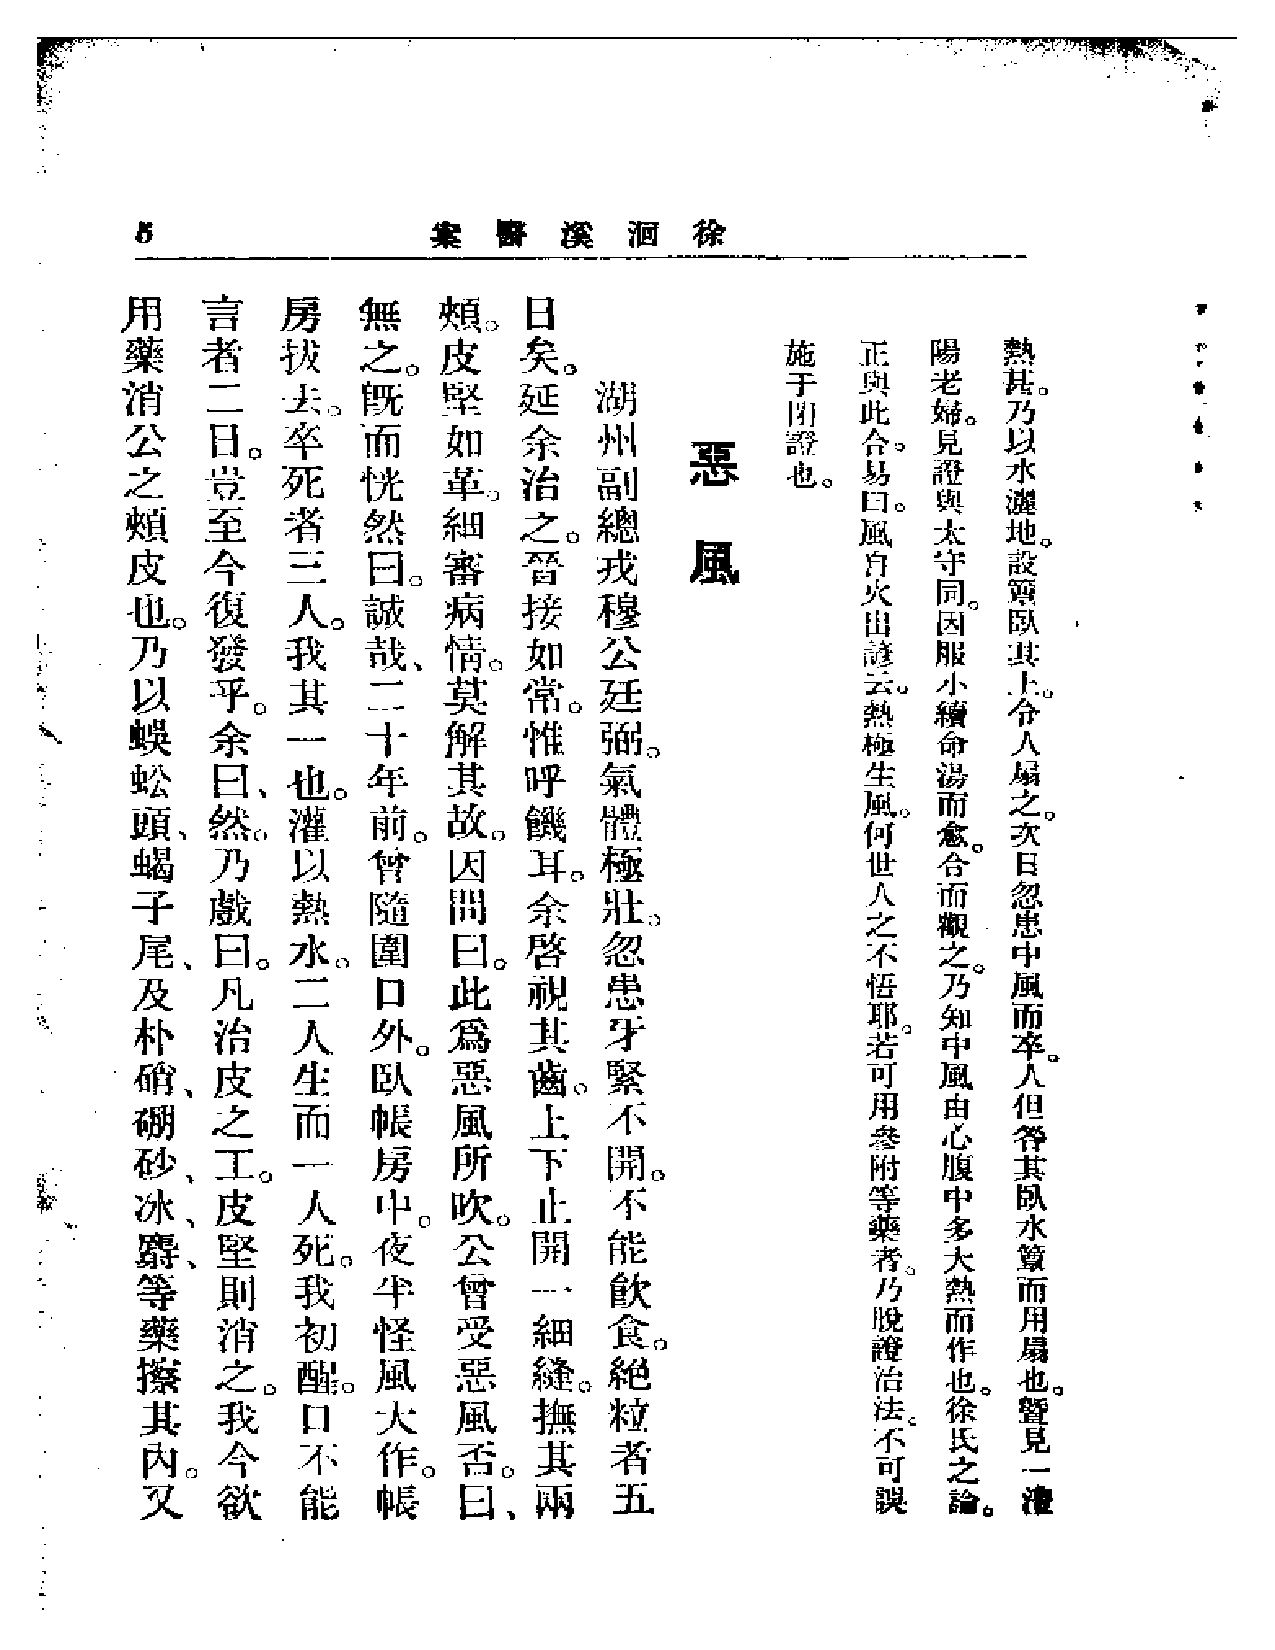 徐洄溪醫案
5
熱甚。乃以水灑地。設簟臥其上。令人扇之。次日忽患中風而卒。人但咎其臥水簟而用扇也。暨見一澧
陽老婦。見證與太守同。因服小續命湯而愈。合而觀之。乃知中風由心腹中多大熱而作也。徐氏之論。
正與此合。易曰。風自火出諺云。熱極生風。何世人之不悟耶。若可用參附等藥者。乃脫證治法。不可誤
施于閉證也。
惡風
湖州副總戎穆公廷弼。氣體極壯。忽患牙緊不開。不能飲食。絕粒者五
日矣。延余治之。晉接如常。惟呼饑耳。余啓視其齒。上下止開一細縫。撫其兩
頰。皮堅如革。細審病情。莫解其故。因問曰。此爲惡風所吹。公曾受惡風否。曰、
無之。既而恍然曰。誠哉、二十年前。曾隨圍口外。臥帳房中。夜半怪風大作。帳
房拔去。卒死者三人。我其一也。灌以熱水。二人生而一人死。我初醒。口不能
言者二日。豈至今復發乎。余曰、然。乃戲曰。凡治皮之工。皮堅則消之。我今欲
用藥消公之頰皮也。乃以蜈蚣頭、蝎子尾、及朴硝、硼砂、冰、麝、等藥擦其內。又